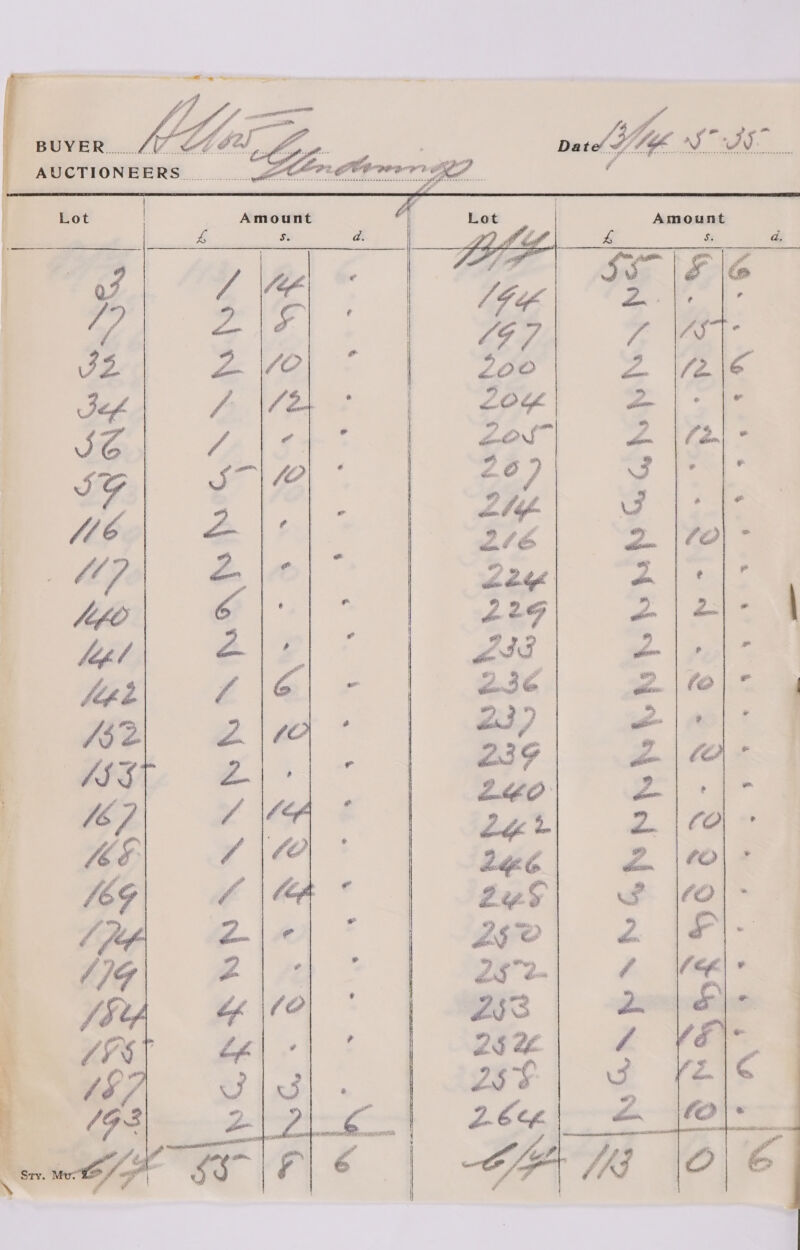 BUYER
Date 5-35
AUCTIONEERS Glendining
Lot Amount Lot Amount
£ s. d. B/f £ s. d.
3 1 14 - 55 8 6
17 2 8 - 194 2 - -
32 2 10 - 197 1 15 -
34 1 12 - 200 2 12 6
36 1 - - 204 2 - -
59 5 10 - 205 2 12 -
116 2 - - 207 3 - -
117 2 - - 214 3 - -
140 6 - - 216 2 10 -
141 2 - - 224 2 - -
142 1 6 - 229 2 2 -
152 2 10 - 233 2 - -
153 2 - - 236 2 10 -
167 1 14 - 237 2 - -
168 1 10 - 239 2 10 -
169 1 14 - 240 2 - -
174 2 - - 242 2 10 -
179 2 - - 246 2 10 -
184 4 10 - 248 3 10 -
185 4 - - 250 2 8 -
187 3 3 - 252 1 14 -
193 2 2 6 253 2 8 -
C/f 55 8 6 254 1 18 -
258 3 12 6
264 2 10 -
C/f 113 0 6